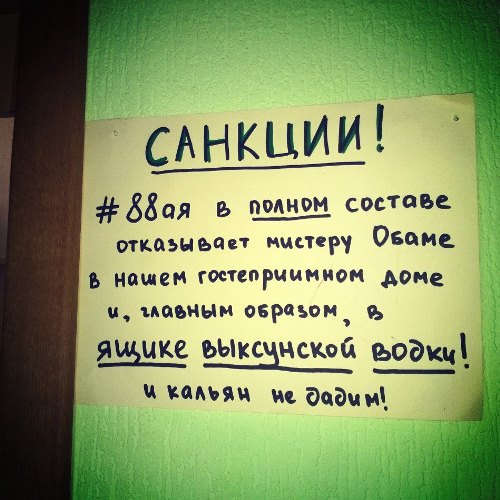 САНКЦИИ!
#88ая в полном составе
отказывает мистеру Обаме
в нашем гостеприимном доме
и, главным образом, в
ящике выксунской водки!
и кальян не дадим!